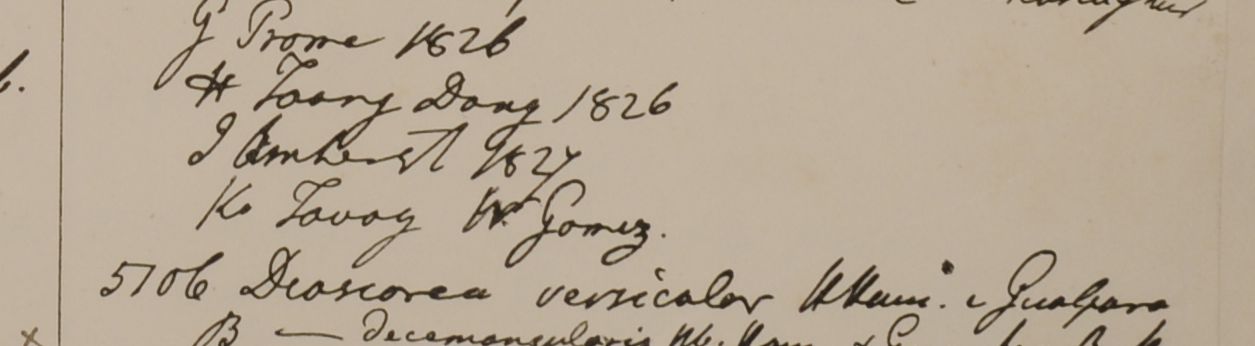 G Prome 1826
H Toong Dong 1826
I Amherst 1827
K Tavoy W. Gomez.
5106 Dioscorea versicolor HHam. e Gualpara
B — decemangularis Hb. Ham.